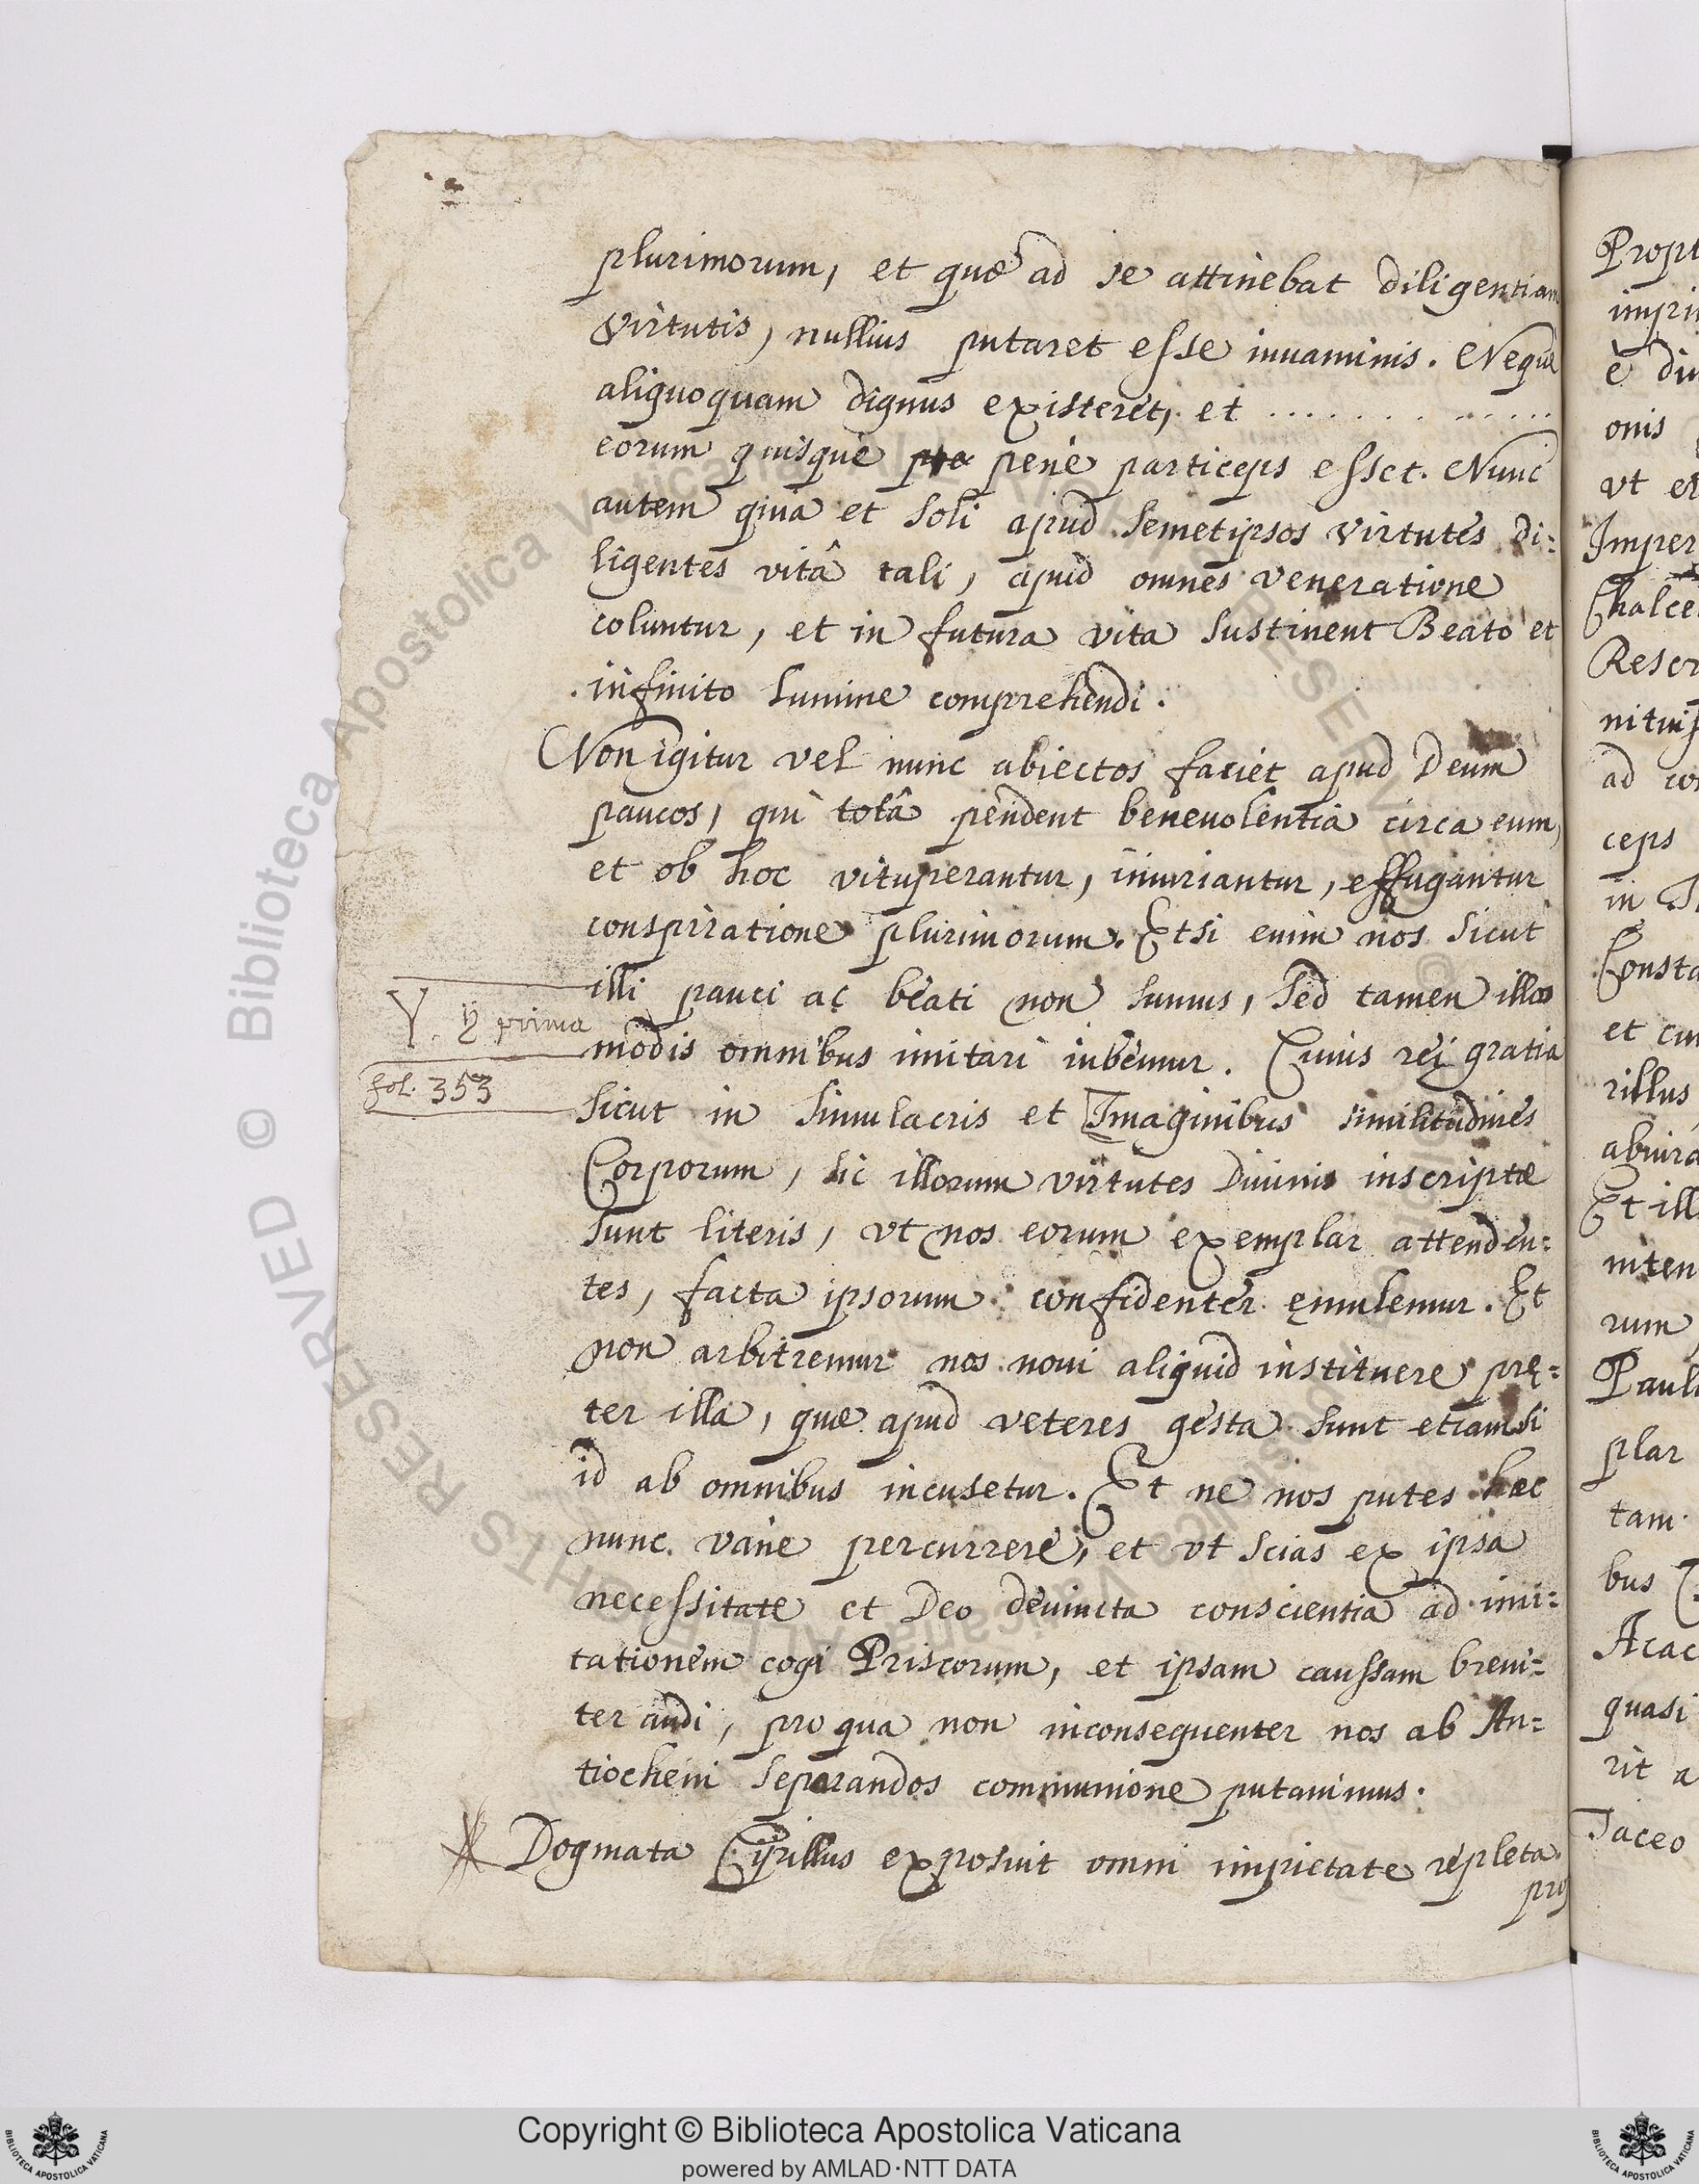 plurimorum, et quæ ad se attinebat diligentiam
virtutis, nullius putaret esse iuuaminis. Neque
aliquoquam dignus existeret, et . . . . . . . . . . . . . .
eorum quisque pene particeps esset. Nunc
autem quia et soli apud semetipsos virtutes di:
ligentes vitâ tali, apud omnes veneratione
coluntur, et in futura vita sustinent Beato et
infinito lumine comprehendi.
Non igitur vel nunc abiectos faciet apud Deum
paucos, qui totâ pendent beneuolentia circa eum,
et ob hoc vituperantur, iniuriantur, effugantur
conspiratione plurimorum. Etsi enim nos sicut
illi pauci ac beati non sumus, sed tamen illos
Y. ij prima
modis omnibus imitari iubemur. Cuius rei gratia
fol. 353
sicut in simulacris et Imaginibus similitudines
Corporum, sic illorum virtutes Diuinis inscriptæ
sunt literis, vt nos eorum exemplar attenden:
tes, facta ipsorum confidenter ęmulemur. Et
non arbitremur nos noui aliquid instituere pręː
ter illa, quæ apud veteres gesta sunt etiamsi
id ab omnibus incusetur. Et ne nos putes hæc
nunc vane percurrere, et vt scias ex ipsa
necessitate et Deo deuincta conscientia ad imi:
tationem cogi Priscorum, et ipsam caussam breui:
ter audi, pro qua non inconsequenter nos ab An:
tiocheni separandos communione putauimus.
Dogmata Cyrillus exposuit omni impietate repleta.
pro
Propt
impri
è diu
onis
vt er
Imper
Chalce
Rescr
ad co
ceps
in
Consta
et cu
rillus
abiura
Et ill
niten
rum
Pauli
plar
tam
bus
Acac
quasi
rit a
Taceo
© Biblioteca Apostolica Vaticana ALL RIGHTS RESERVED
Copyright © Biblioteca Apostolica Vaticana
powered by AMLAD·NTT DATA
BIBLIOTECA APOSTOLICA VATICANA
BIBLIOTECA APOSTOLICA VATICANA